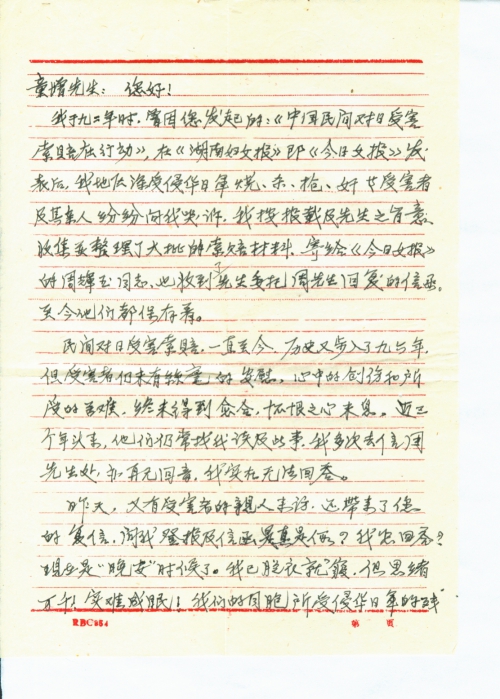 童增先生：您好！
我于九二年时，曾因您发起的：《中国民间对日受害
索赔在行动》，在《湖南妇女报》即《今日女报》发
表后，我地区深受侵华日军烧、杀、抢、奸女受害者
及其亲人纷纷向我哭诉，我按报载及先生之旨意，
收集及整理了大批的索赔材料，寄给《今日女报》
的周辉玉同志，也收到先生委托周先生回复的信函，
至今他们都保存着。
民间对日受害索赔，一直至今，历史又步入了九六年，
但受害者仍未有丝毫的安慰，心中的创伤和所
受的苦难，终未得到愈合，怀恨之心未息。近三
个年以来，他们仍常找我谈及此事，我多次去信周
先生处，亦再无回音，我实在无法回答。
昨天，又有受害者的亲人来访，还带来了您
的复信，问我登报及信函是真是假？我怎回答？
现在是“晚安”时候了。我已脱衣就寝，但思绪
万千，实难成眠！我们的同胞所受侵华日军的
RBC854
第 页